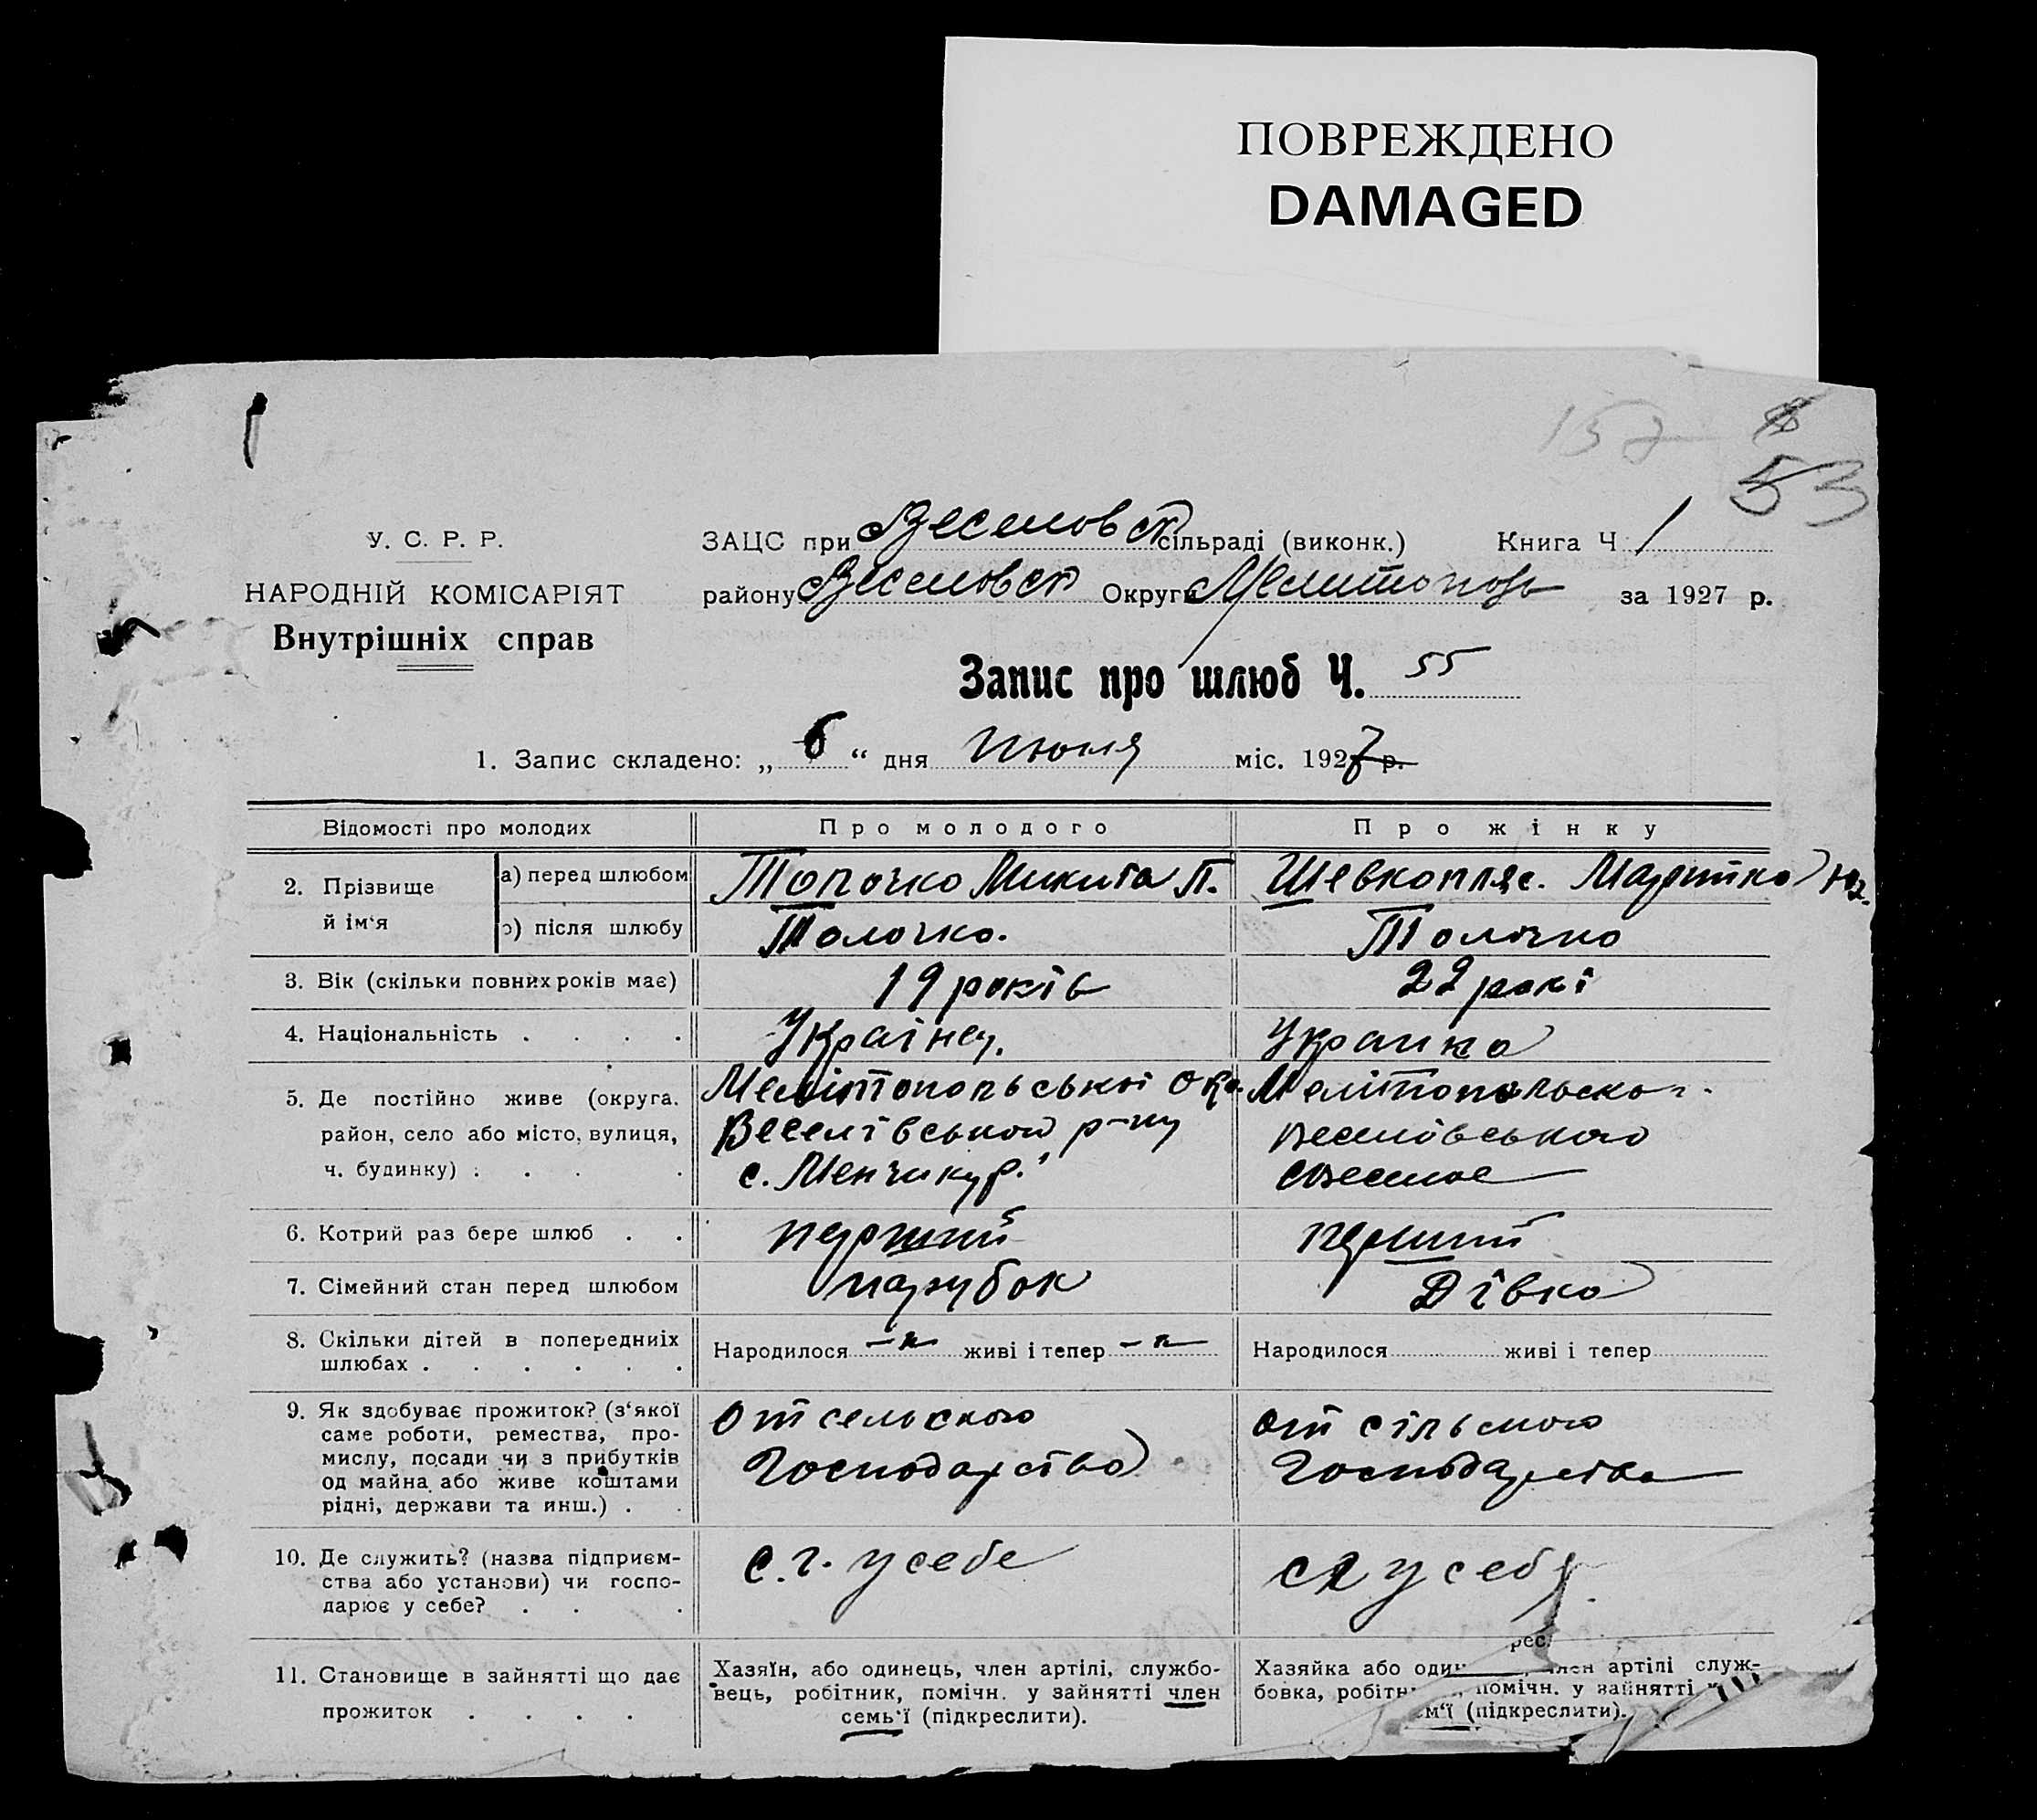 ПОВРЕЖДЕНО
DAMAGED
53
У. С. Р. Р.
НАРОДНІЙ КОМІСАРІЯТ
Внутрішніх справ
ЗАЦС при Веселовск сільраді (виконк.) Книга Ч 1
району Веселовск Округи Мелитополь за 1927 р.
Запис про шлюб Ч. 55
1. Запис складено: „ 6 “ дня июня міс. 1927 р.
Відомості про молодих Про молодого Про жінку
2. Прізвище й ім‘я а) перед шлюбом Топочко Микита П. Шевкопляс. Маритка
після шлюбу Толочко. Толочко
3. Вік (скільки повних років має) 19 років 22 рокі
4. Національність . . . . Українец. Украинка
5. Де постійно живе (округа. Мелітопольської окр. Мелітопольско
район, село або місто, вулиця, Веселівського р-ну веселовського
ч. будинку) . . . . с. Менчикур. Веселое
6. Котрий раз бере шлюб . . перший перший
7. Сімейний стан перед шлюбом парубок Дівка
8. Скільки дітей в попередниіх шлюбах . . . . . . Народилося – живі і тепер – Народилося живі і тепер
9. Як здобуває прожиток? (з‘якої от сельского от сільського
саме роботи, ремества, про- Господарства Господарства
мислу, посади чи з прибутків
од майна або живе коштами
рідні, держави та инш.) . .
10. Де служить? (назва підприєм- с. г. у себе сг у себя
ства або установи) чи госпо-
дарює у себе? . . .
11. Становище в зайнятті що дає Хазяїн, або одинець, член артілі, службо- Хазяйка або один член артілі служ-
прожиток . . . . вець, робітник, помічн. у зайнятті член бовка, робітн помічн. у зайнятті
семь‘ї (підкреслити). м‘ї (підкреслити).